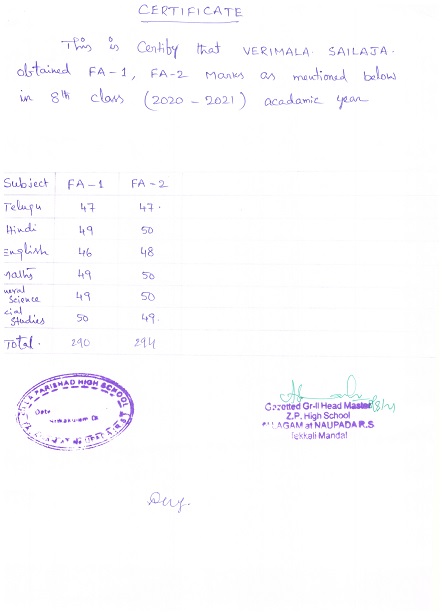 CERTIFICATE
This is Certify that VERIMALA. SAILAJA.
obtained FA-1, FA-2 Marks as mentioned below
in 8th class (2020 - 2021) acadamic year
Subject FA-1 FA-2
Telugu 47 47.
Hindi 49 50
English 46 48
Maths 49 50
neral Science 49 50
cial Studies 50 49.
Total. 290 294
PARISHAD HIGH SCHOOL
Date
Gazetted Gr-II Head Master
Z.P. High School
LAGAM at NAUPADA R.S
Tekkali Mandal